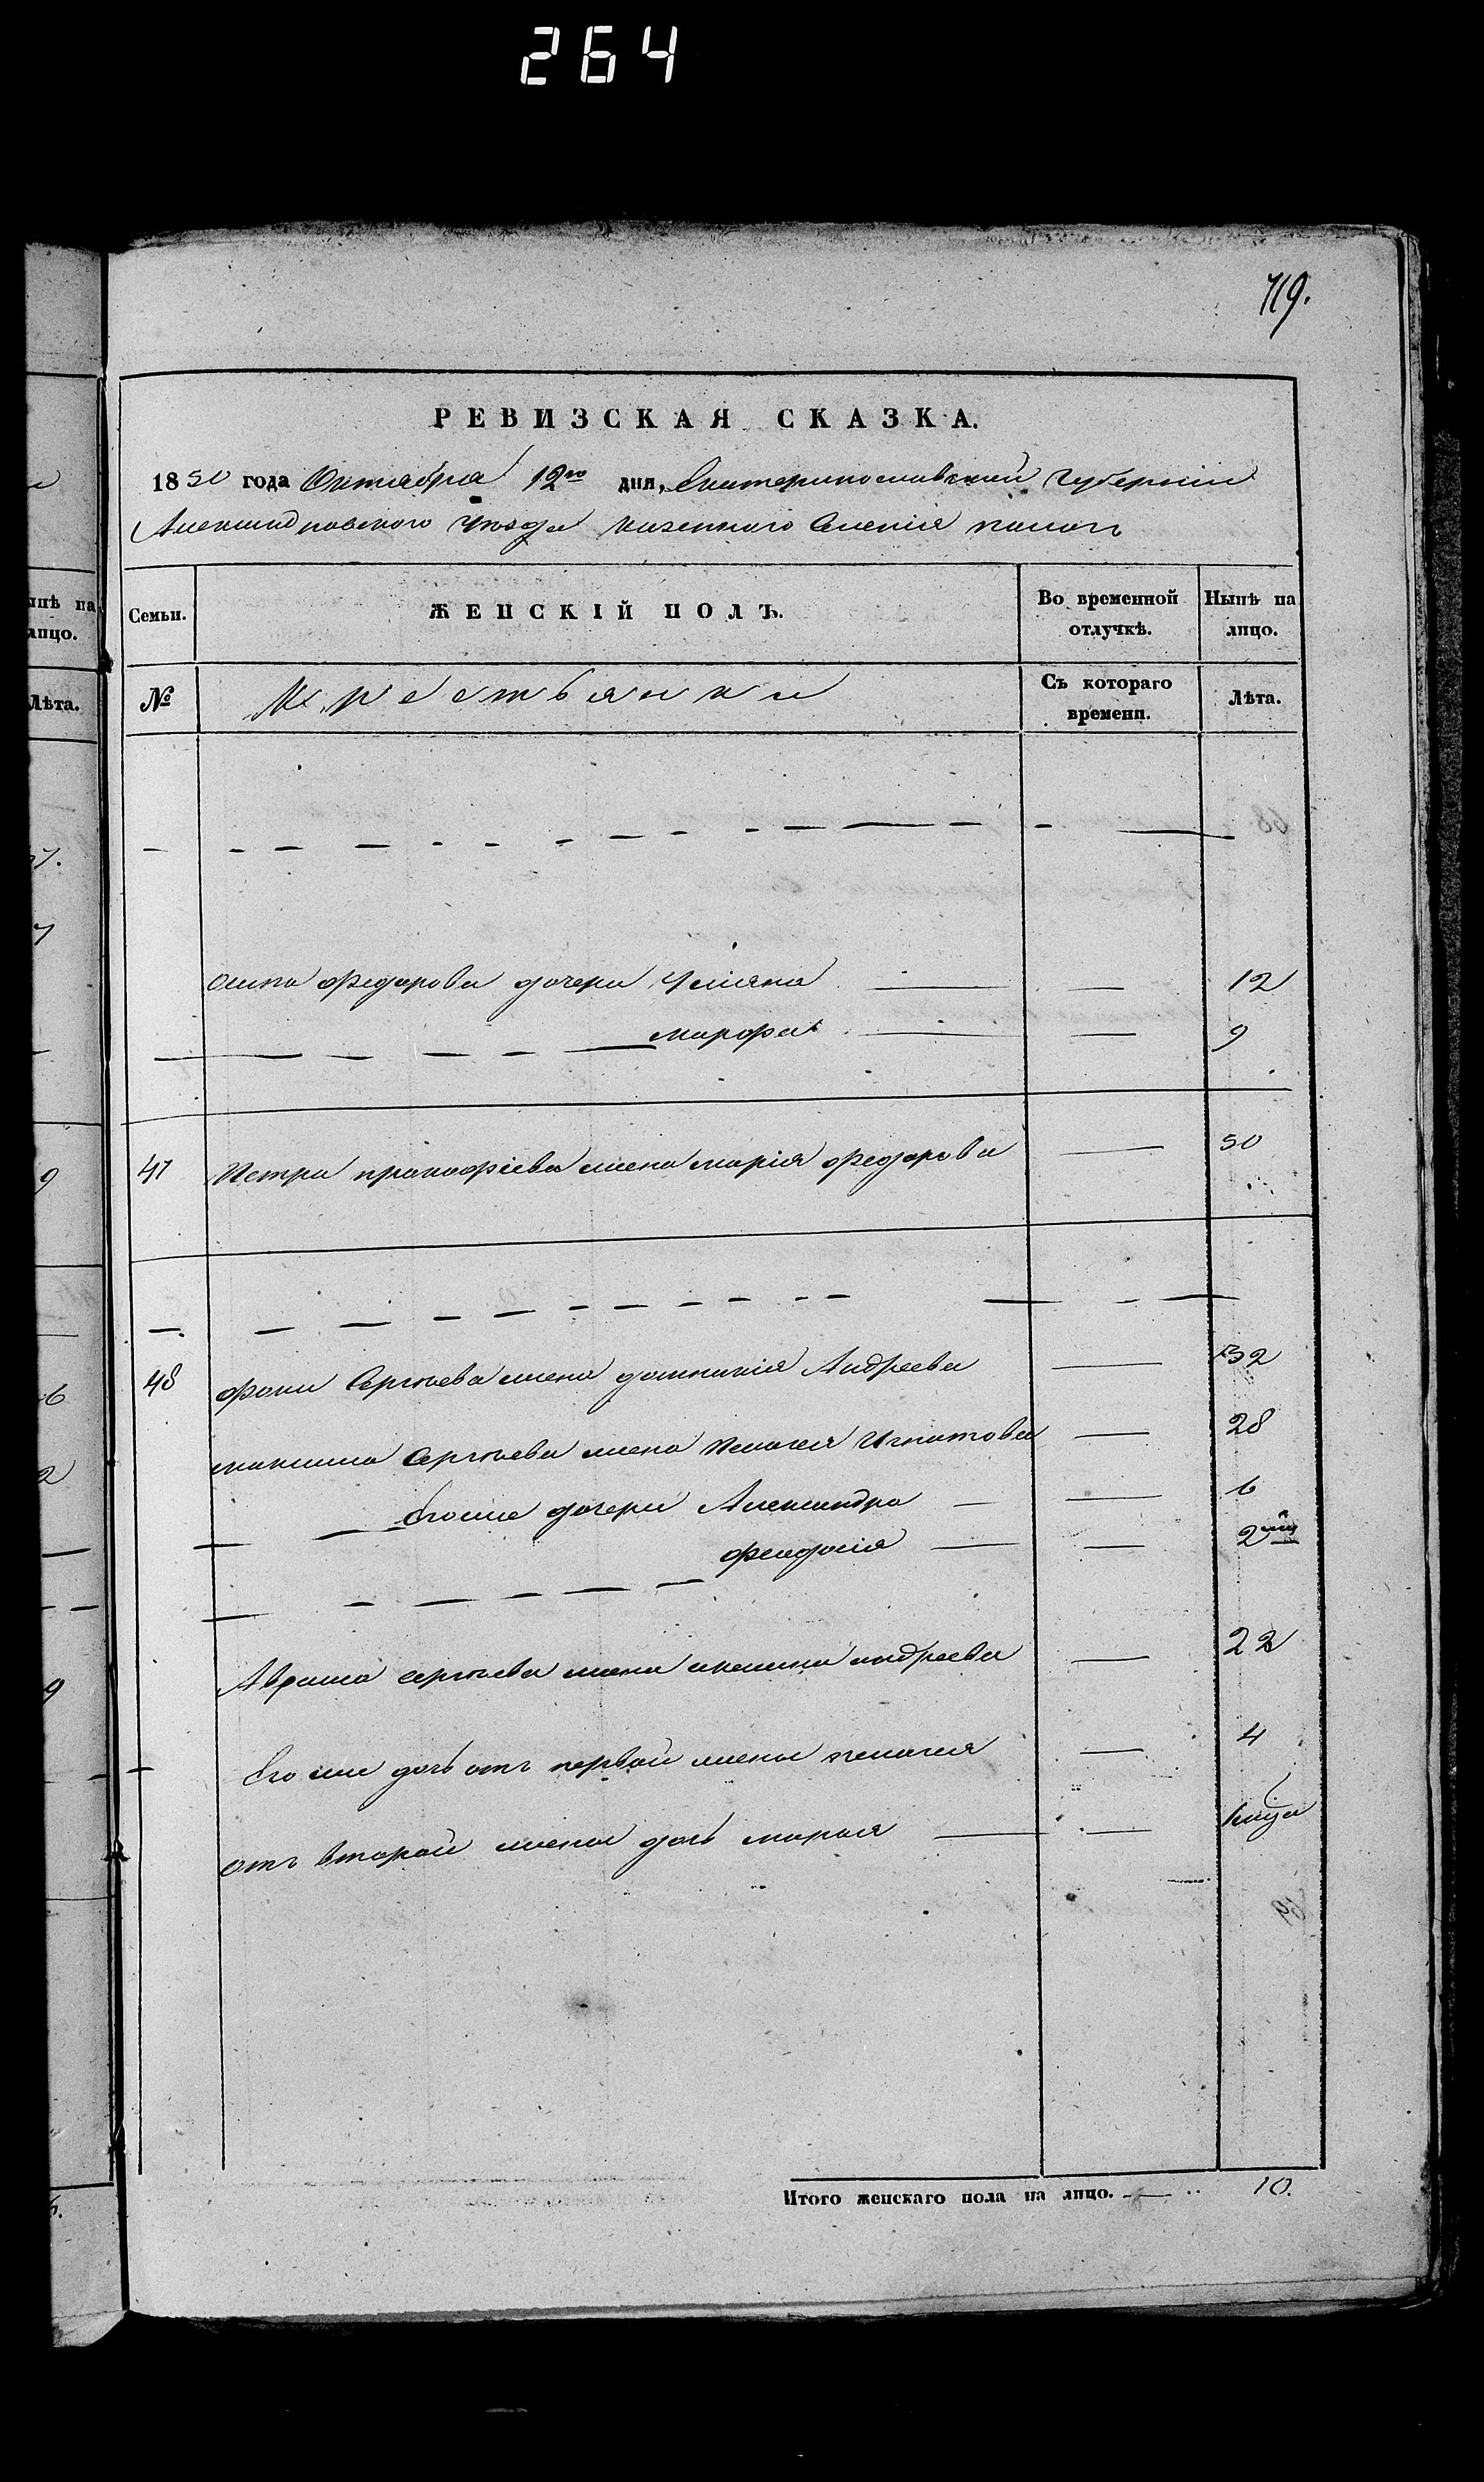 264
719.
РЕВИЗСКАЯ СКАЗКА.
1850 года Октября 12го дня, Екатеринославской Губернии
Александровского Уезда казенного Селения
Семьи. ЖЕНСКІЙ ПОЛЪ. Во временной отлучкѣ. Нынѣ на лицо.
№ Крестьянки Съ котораго времени. Лѣта.
Федорова дочери Ульяна 12
марфа 9
47 Петра пракофіева жена марія Федорова 50
48 фоки Сергѣева жена домникія Андреева 32
максима Сергѣева жена Пелагея Игнатова 28
Его же дочери Александра 6
феодосія 2
Аврама сергѣева жена андреева 22
Его же дочь отъ первой жены пелагея 4
отъ второй жены дочь марья
Итого женскаго пола на лицо. 10.